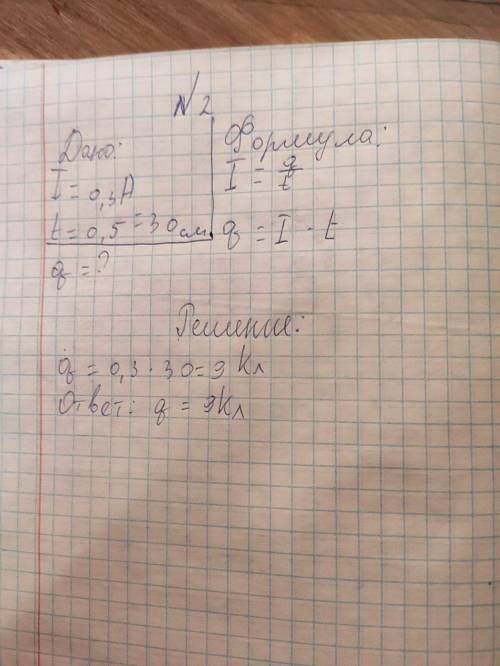 №2
Дано:
I = 0,3А
t = 0,5 = 30 см
q = ?
Формула:
I = q/t
q = I · t
Решение:
q = 0,3 · 30 = 9 Кл
Ответ: q = 9Кл